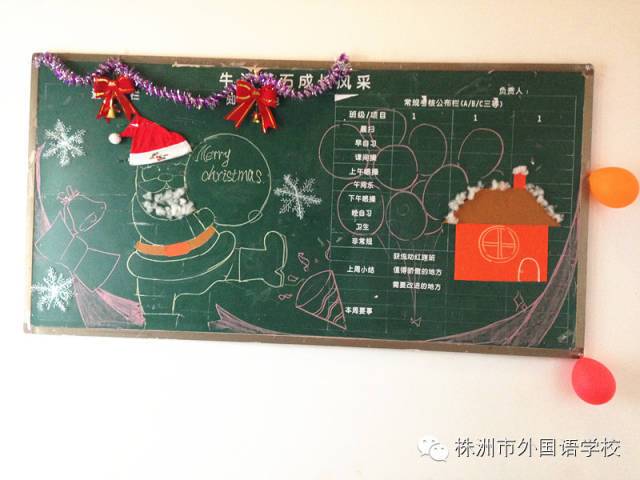 成长风采
负责人：
常规考核公布栏(A/B/C三等)
班级/项目 1 1 1
晨扫
早自习
课间操
上午眼操
午育乐
下午眼操
晚自习
卫生
非常规
上周小结
获流动红旗班
值得骄傲的地方
需要改进的地方
本周要事
Merry
christmas.
株洲市外国语学校